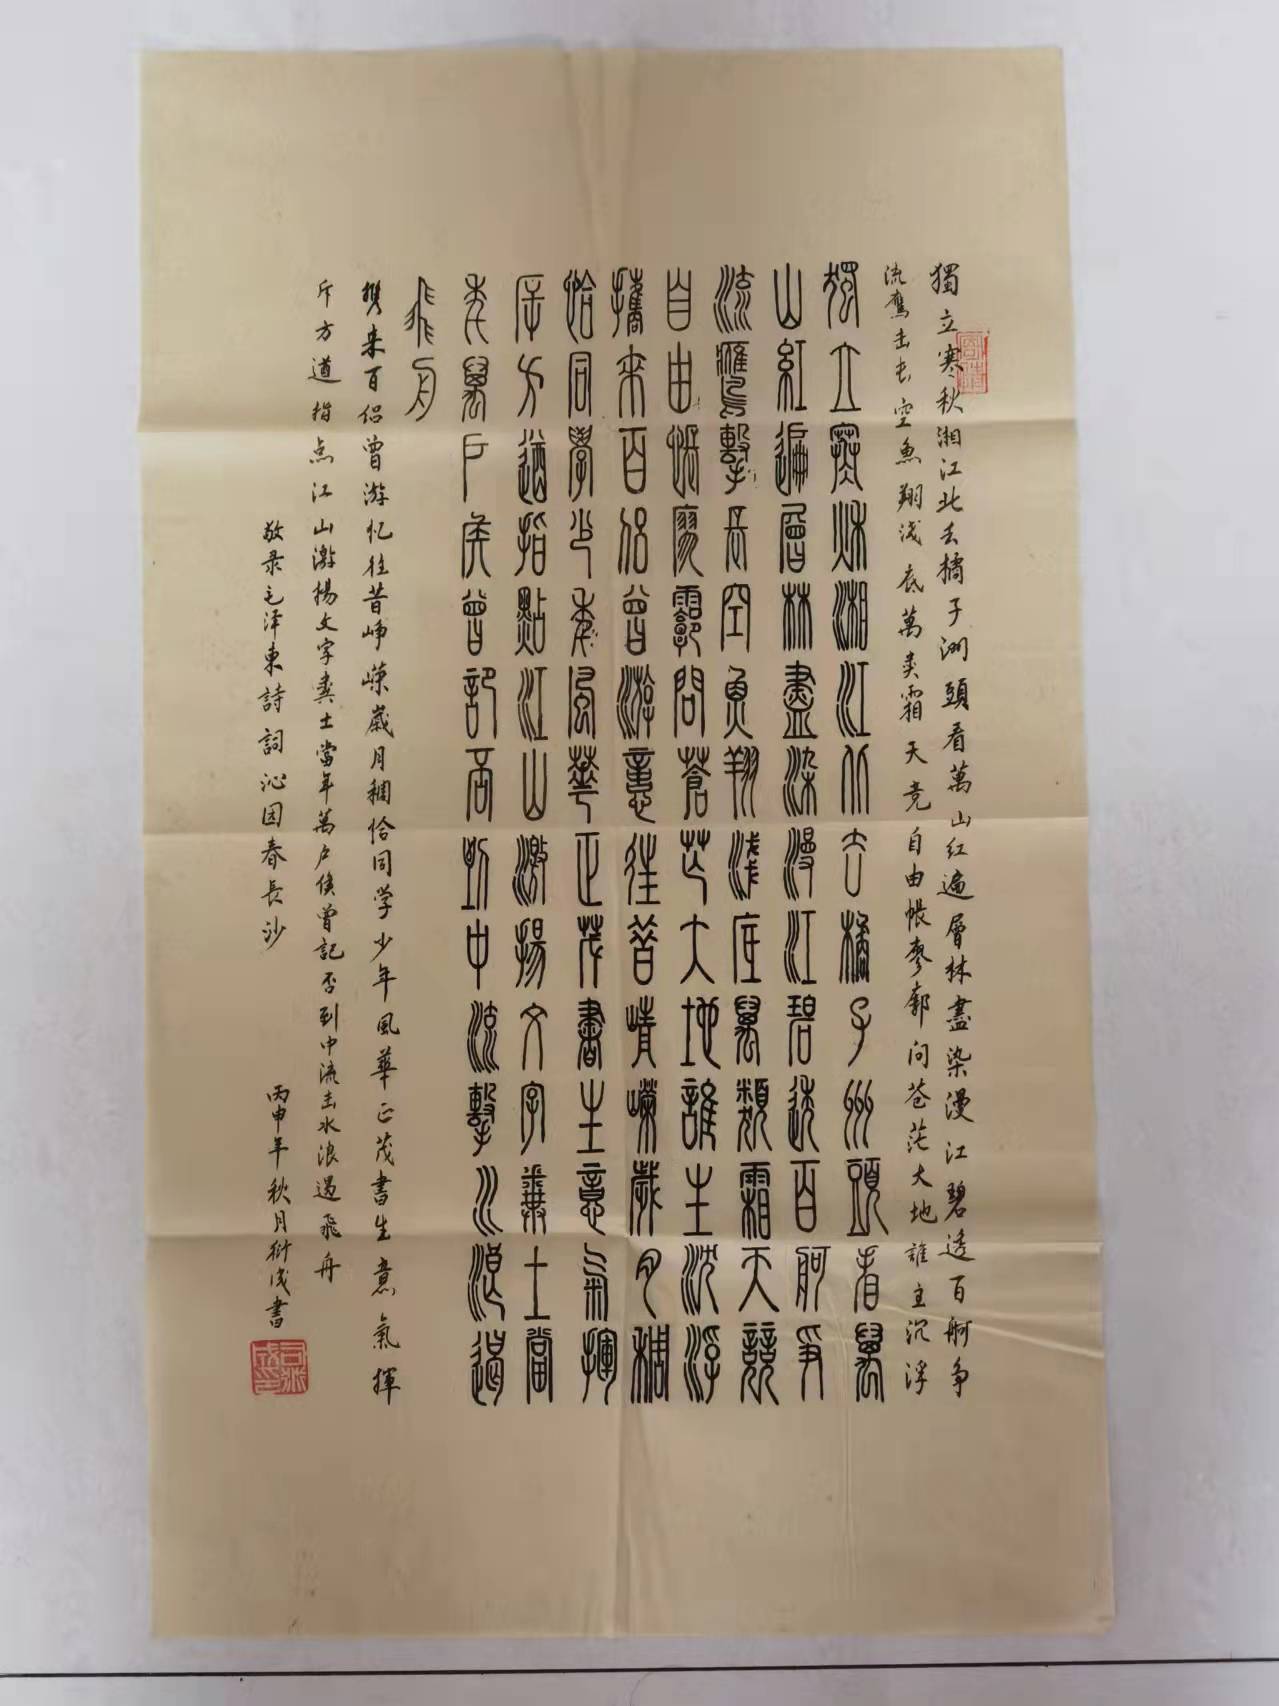 獨立寒秋湘江北去橘子洲頭看萬山红遍層林盡染漫江碧透百舸争
流鹰击长空魚翔浅底萬类霜天竞自由怅寥廓问苍茫大地誰主沉浮
獨立寒秋湘江北去橘子州頭看萬
山紅遍層林盡染漫江碧透百舸爭
流鷹擊長空魚翔淺底萬類霜天競
自由悵寥廓問蒼茫大地誰主沈浮
攜來百侶曾游憶往昔崢嶸歲月稠
恰同學少年風華正茂書生意氣揮
斥方遒指點江山激揚文字糞土當
年萬戶侯曾記否到中流擊水浪遏
飛舟
携来百侣曾游忆往昔峥嵘歲月稠恰同学少年風華正茂書生意氣揮
斥方遒指点江山激揚文字粪土當年萬户侯曾記否到中流击水浪遏飛舟
敬录毛泽東詩詞沁园春長沙
丙申年秋月衍成書